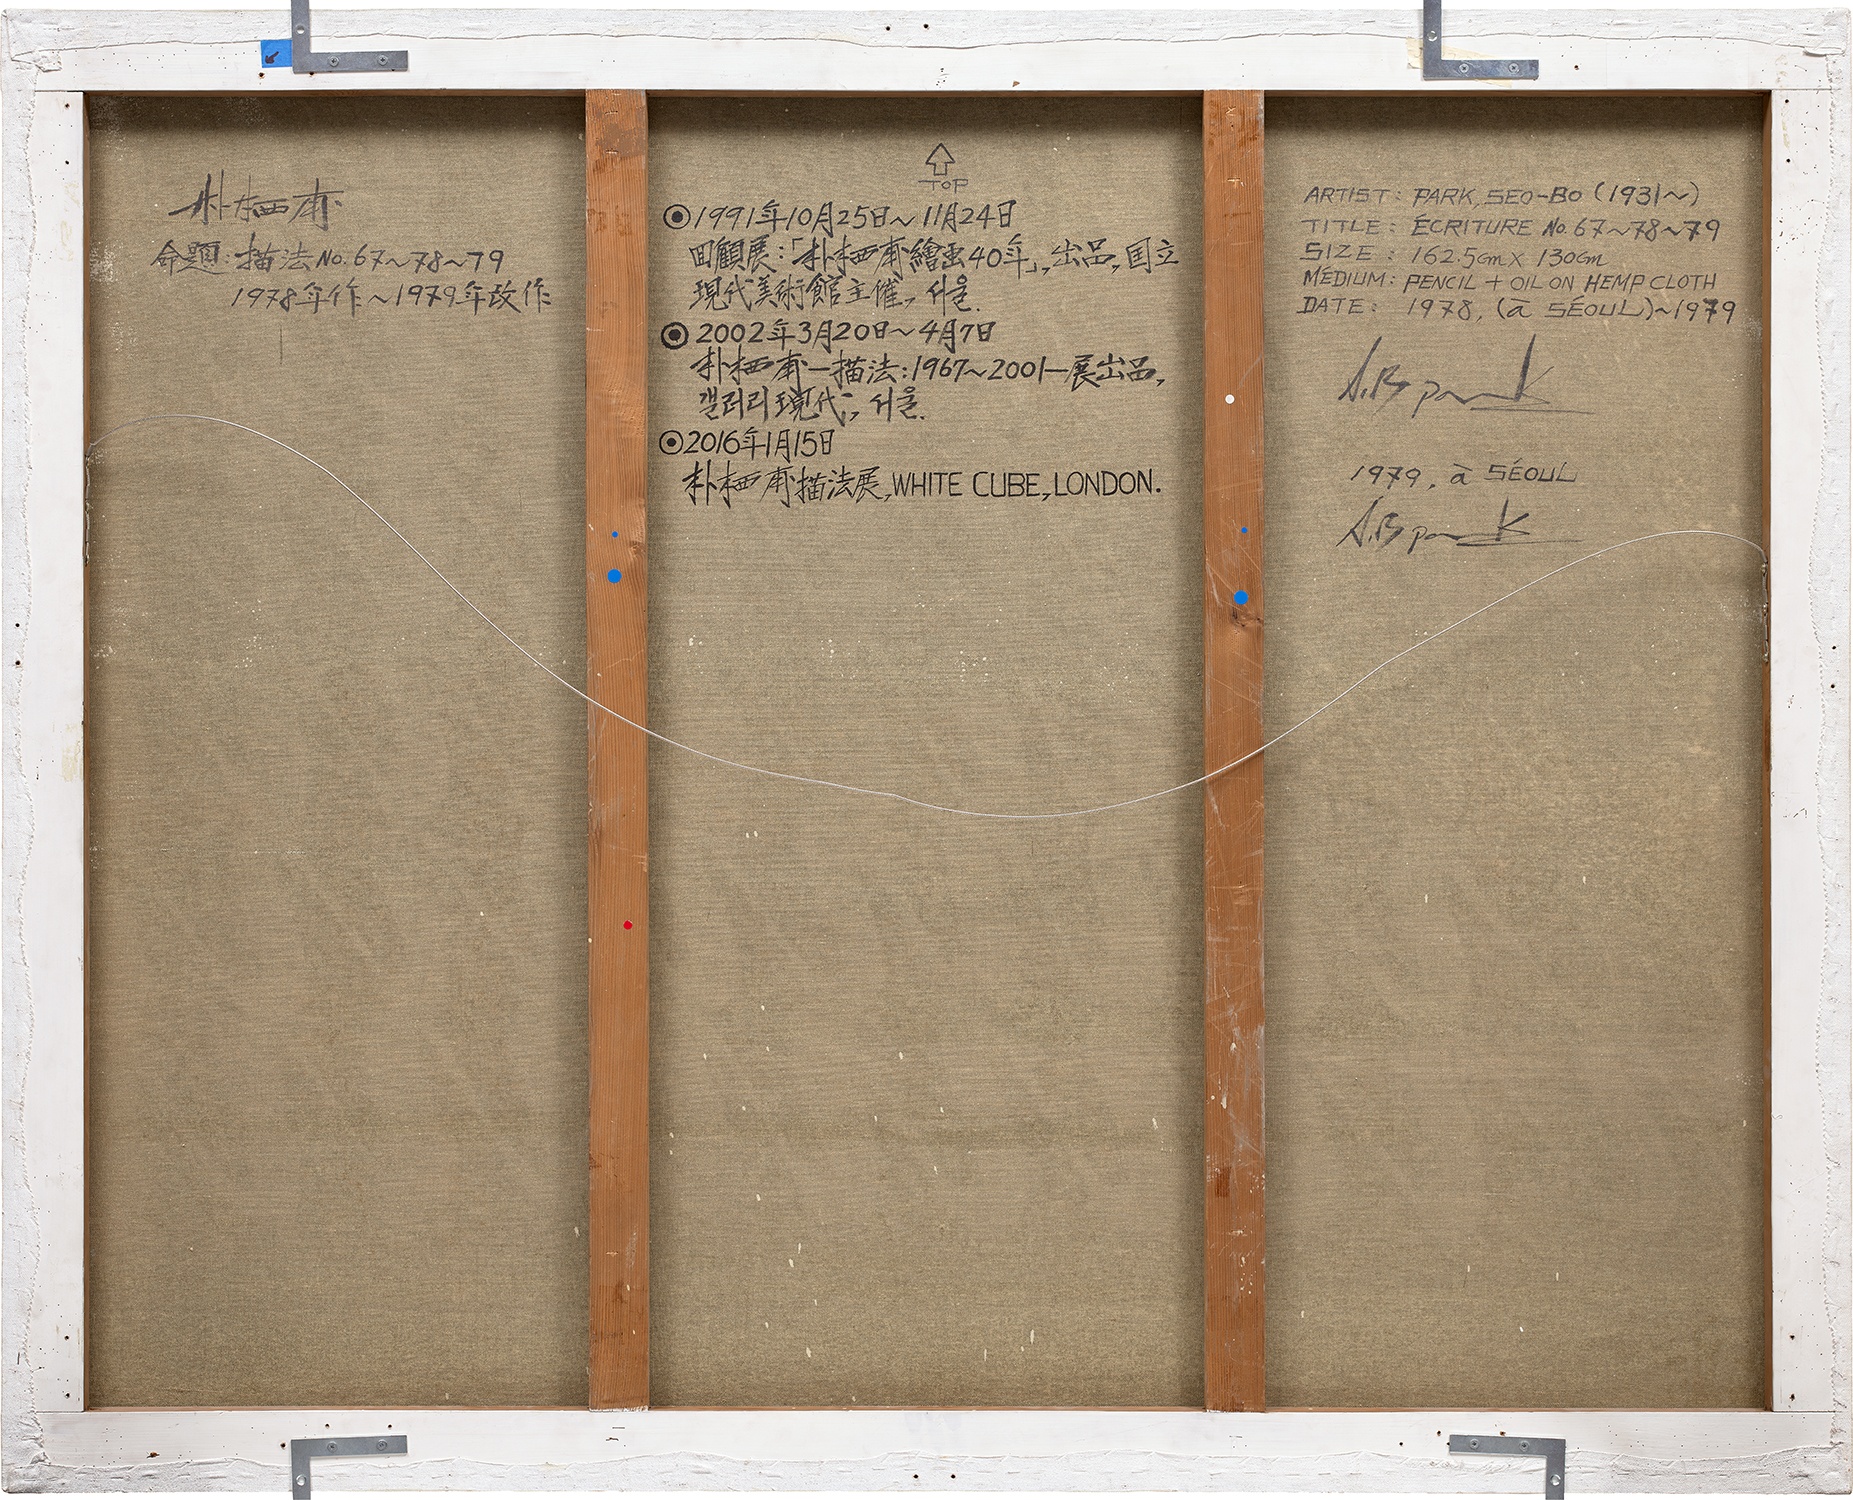 朴栖甫
命題:描法No.67~78~79
1978年作~1979年改作
TOP
◉1991年10月25日~11月24日
回顧展:「朴栖甫繪画40年」, 出品, 国立
現代美術館主催, 서울.
◉2002年3月20日~4月7日
朴栖甫—描法:1967~2001—展出品,
갤러리現代, 서울.
◉2016年1月15日
朴栖甫描法展, WHITE CUBE, LONDON.
ARTIST: PARK, SEO-BO (1931~)
TITLE: ÉCRITURE No.67~78~79
SIZE: 162.5cm X 130cm
MÉDIUM: PENCIL + OIL ON HEMP CLOTH
DATE: 1978, (ā SÉOUL)~1979
S.B park
1979, ā SÉOUL
S.B park